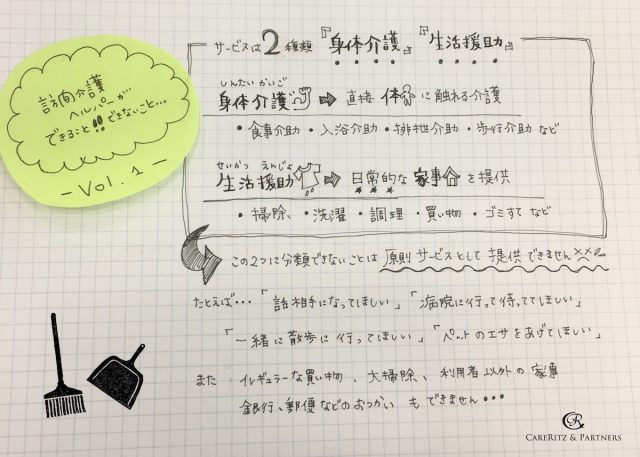 訪問介護
ヘルパーが…
できること!!できないこと…
- Vol.1 -
サービスは2種類『身体介護』『生活援助』
しんたいかいご
身体介護 ➡ 直接 体 に触れる介護
・食事介助・入浴介助・排泄介助・歩行介助 など
せいかつ えんじょ
生活援助 ➡ 日常的な 家事 を提供
・掃除、・洗濯・調理・買い物・ゴミすて など
この2つに分類できないことは 原則 サービスとして 提供 できません
たとえば・・・「話相手になってほしい」「病院に行って待っててほしい」
「一緒に散歩に行ってほしい」「ペットのエサをあげてほしい」
また イレギュラーな買い物、大掃除、利用者以外の家事
銀行、郵便などのおつかい もできません・・・
CARERITZ & PARTNERS